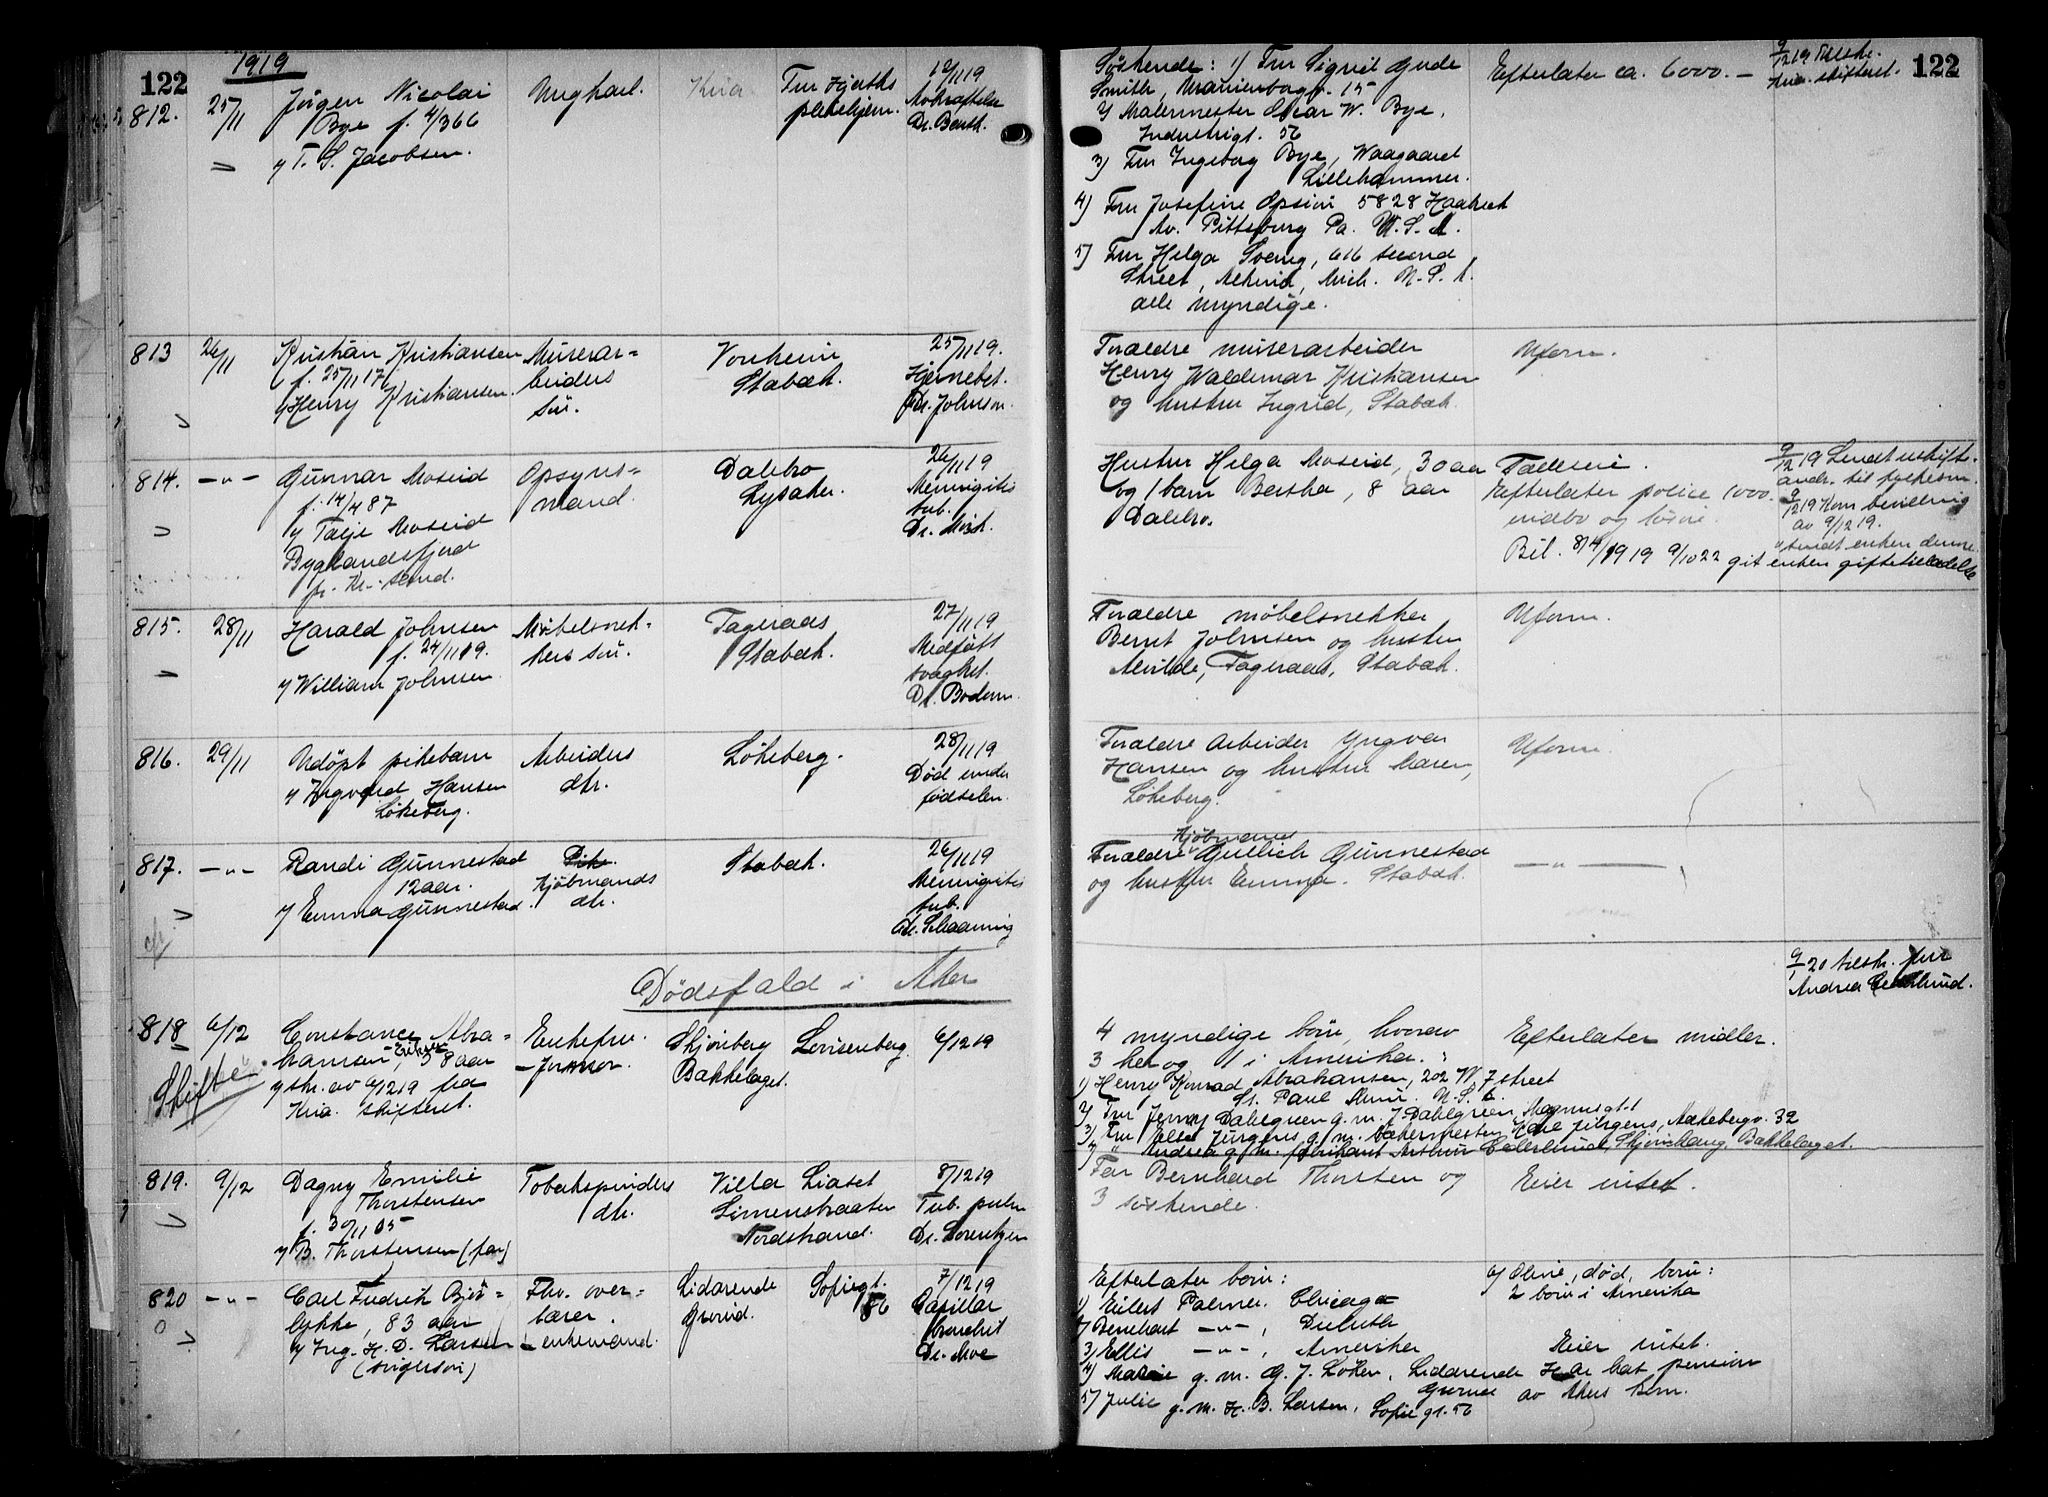 122
1919
812.
25/11
Jörgen Nicolai
Bye f. 4/3 66
Ungkarl.
Kria
Fru Hjorths
pleiehjem.
12/11 19
Avkræftelse
Dr. Benth.
y T. S. Jacobsen.
813
26/11
Kristian Kristiansen
f. 25/11 17
y Henry Kristiansen.
Murerar=
beiders
sön.
Vonheim
Stabæk.
25/11 19.
Hjernebet.
Dr. Johnson.
814.
— „ —
Gunnar Moseid
f. 14/4 87
y Tarje Moseid
Byglandsfjord
pr. Kr.sand.
Opsyns=
mand.
Dalebo
Lysaker.
26/11 19
Meningitis
tub.
Dr. Mork.
815.
28/11
Harald Johnsen
f. 24/11 19.
y William Johnsen
Möbelsnek-
kers sön.
Fageraas
Stabæk.
27/11 19
Medfödt
svaghet.
Dr. Bodom.
816.
29/11
Udöpt pikebarn
y Yngvard Hansen
Lökeberg.
Arbeiders
dtr.
Lökeberg.
28/11 19
Död under
födselen.
817.
— „ —
Randi Gunnestad
12 aar.
y Emma Gunnestad.
Pike.
Kjöbmands
dtr.
Stabæk.
26/11 19
Meningitis
tub.
Dr. Schaanning
Dödsfald i Aker
818
6/12
Skifte
Constance Abra=
hamsen, Eriksen, 58 aar
y skr. av 6/12 19 fra
Kria. skifteret.
Enkefru
- Jormor.
Skjönberg
Bakkelaget.
Lovisenberg.
6/12 19
819.
9/12
Dagny Emilie
Thorstensen
f. 30/11 05
y B. Thorstensen (far)
Tobakspinders
dtr.
Villa Liaset
Simenstraaten
Nordstrand.
8/12 19
Tub. pulm
Dr. Lorentzen
820
— „ —
Carl Fredrik Björ=
lykke, 83 aar
y Ing. H. D. Larsen
(svigersön)
Fhv. over=
lærer.
- enkemand.
Lidarende
Grorud.
Sofiegt.
56
7/12 19
Capillar
bronchit
Dr. Moe
122
Söskende: 1) Fru Sigrid Gude
Smith, Uranienborgv. 15
2) Malermester Oscar W. Bye,
Industrigt. 56
3) Fru Ingeborg Bye, Waagaard
Lillehammer.
4) Fru Josefine Opsion 5828 Haakest
Av. Pittsburg Pa. U. S. A.
5) Fru Helga Sveng, 616 second
Street, Mich. U. S. A.
alle myndige.
Efterlater ca. 6000.—
9/12 19 tilskr.
Kria. skifteret.
Foræeldre murerarbeider
Henry Waldemar Kristiansen
og hustru Ingrid, Stabæk.
Uform.
Hustru Helga Moseid, 30 aar
og 1 barn Bertha, 8 aar
Dalebo.
Fælleseie.
Efterlater police 1000.
indbo og lösöre.
Bil. 814/1919 9/10 22 git enken giftetilladelse
9/12 19 Sendt uskift.
andr. til fylkesm.
9/12 19 Kom bevilling
av 9/12 19.
sendt enken denne
Forældre möbelsnekker
Bernt Johnsen og hustru
Alvilde, Fageraas, Stabæk.
Uform.
Forældre Arbeider Yngvar
Hansen og hustru Maren,
Lökeberg.
Uform.
Forældre Kjöbmand Gullich Gunnestad
og hustru Emma. Stabæk.
— „ —
9/1 20 tilskr. fru
Andrea Cederlund.
4 myndige börn, hvorav
3 her og 1 i Amerika.
1) Henry Konrad Abrahamsen, 202 W. 7 street
St. Paul Minn. U. S. A.
2) Fru Jenny Dahlgreen g. m. J. Dahlgreen, Magnusgt. 1
3) Fru Else Jürgens g. m. bakermester Karl Jürgens, Akebergv. 32
4) „ Andrea g. m. fabrikant Arthur Cederlund, Skjönhaug, Bakkelaget.
Efterlater midler.
Far Bernhard Thorsten og
3 söskende.
Eier intet.
Efterlater börn:
1) Eilert Palmer. Chicago
2) Bernhart — „ —, Duluth
3) Ellis — „ —, Amerika
4) Marie g. m. G. J. Löken, Lidarende
Grorud
5) Julie g. m. H. B. Larsen, Sofiegt. 56
6) Oline, död, börn:
2 börn i Amerika
Eier intet.
Har hat pension
av Akers kom.